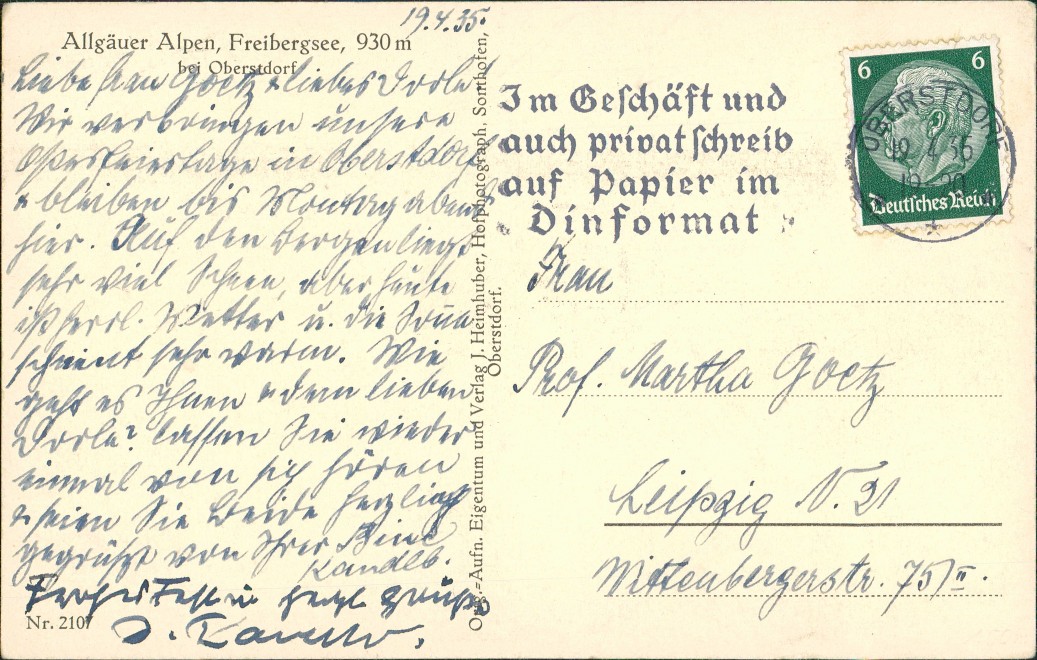 19.4.35.
Allgäuer Alpen, Freibergsee, 930 m
bei Oberstdorf
Liebe Frau Goetz + liebes Dorle!
Wir verbringen unsere
Osterfeiertage in Oberstdorf
+ bleiben bis Montag abend
hier. Auf den Bergen liegt
sehr viel Schnee, aber heute
ist herrl. Wetter u. die Sonne
scheint sehr warm. Wie
geht es Ihnen + dem lieben
Dorle? Lassen Sie wieder
einmal von sich hören
+ seien Sie beide herzlich
gegrüßt von Ihrer
Kandlb.
Frohes Fest u. herzl. Grüße
Nr. 2107
Orig.=Aufn. Eigentum und Verlag J. Heimhuber, Hofphotograph, Sonthofen,
Oberstdorf.
Im Geschäft und
auch privat schreib
auf Papier im
Dinformat
6 6
Deutsches Reich
OBERSTDORF
Frau
Prof. Martha Goetz
Leipzig N. 21
Wittenbergerstr. 75/II.